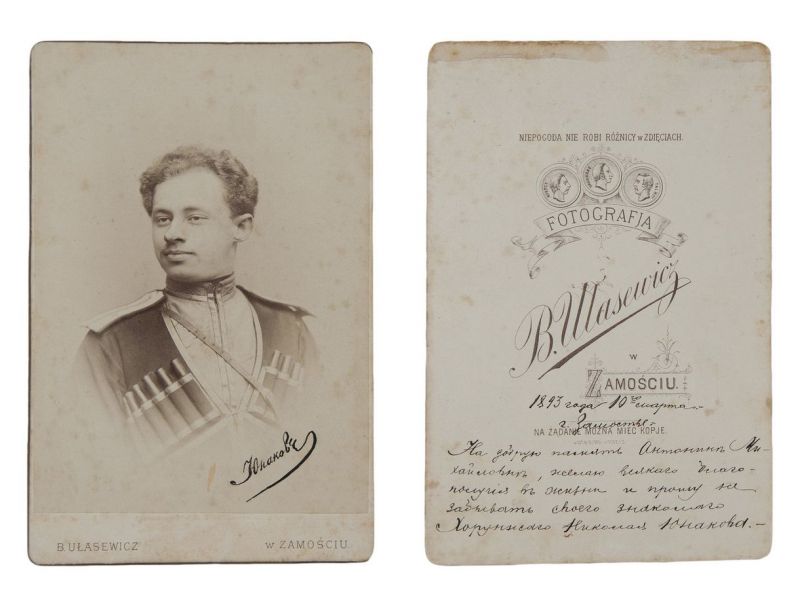 Юнаковъ
B. UŁASEWICZ
w ZAMOŚCIU.
NIEPOGODA NIE ROBI RÓŻNICY w ZDIĘCIACH.
FOTOGRAFJA
B. Ułasewicz
W
ZAMOŚCIU.
1893 года 10го марта
г. Замостье
NA ŻĄDANIE MOŻNA MIEĆ KOPJE.
На добрую память Антонинѣ Ми-
хайловнѣ, желаю всякаго благо-
получія въ жизни и прошу не
забывать своего знакомаго
Хорунжаго Николая Юнакова.-